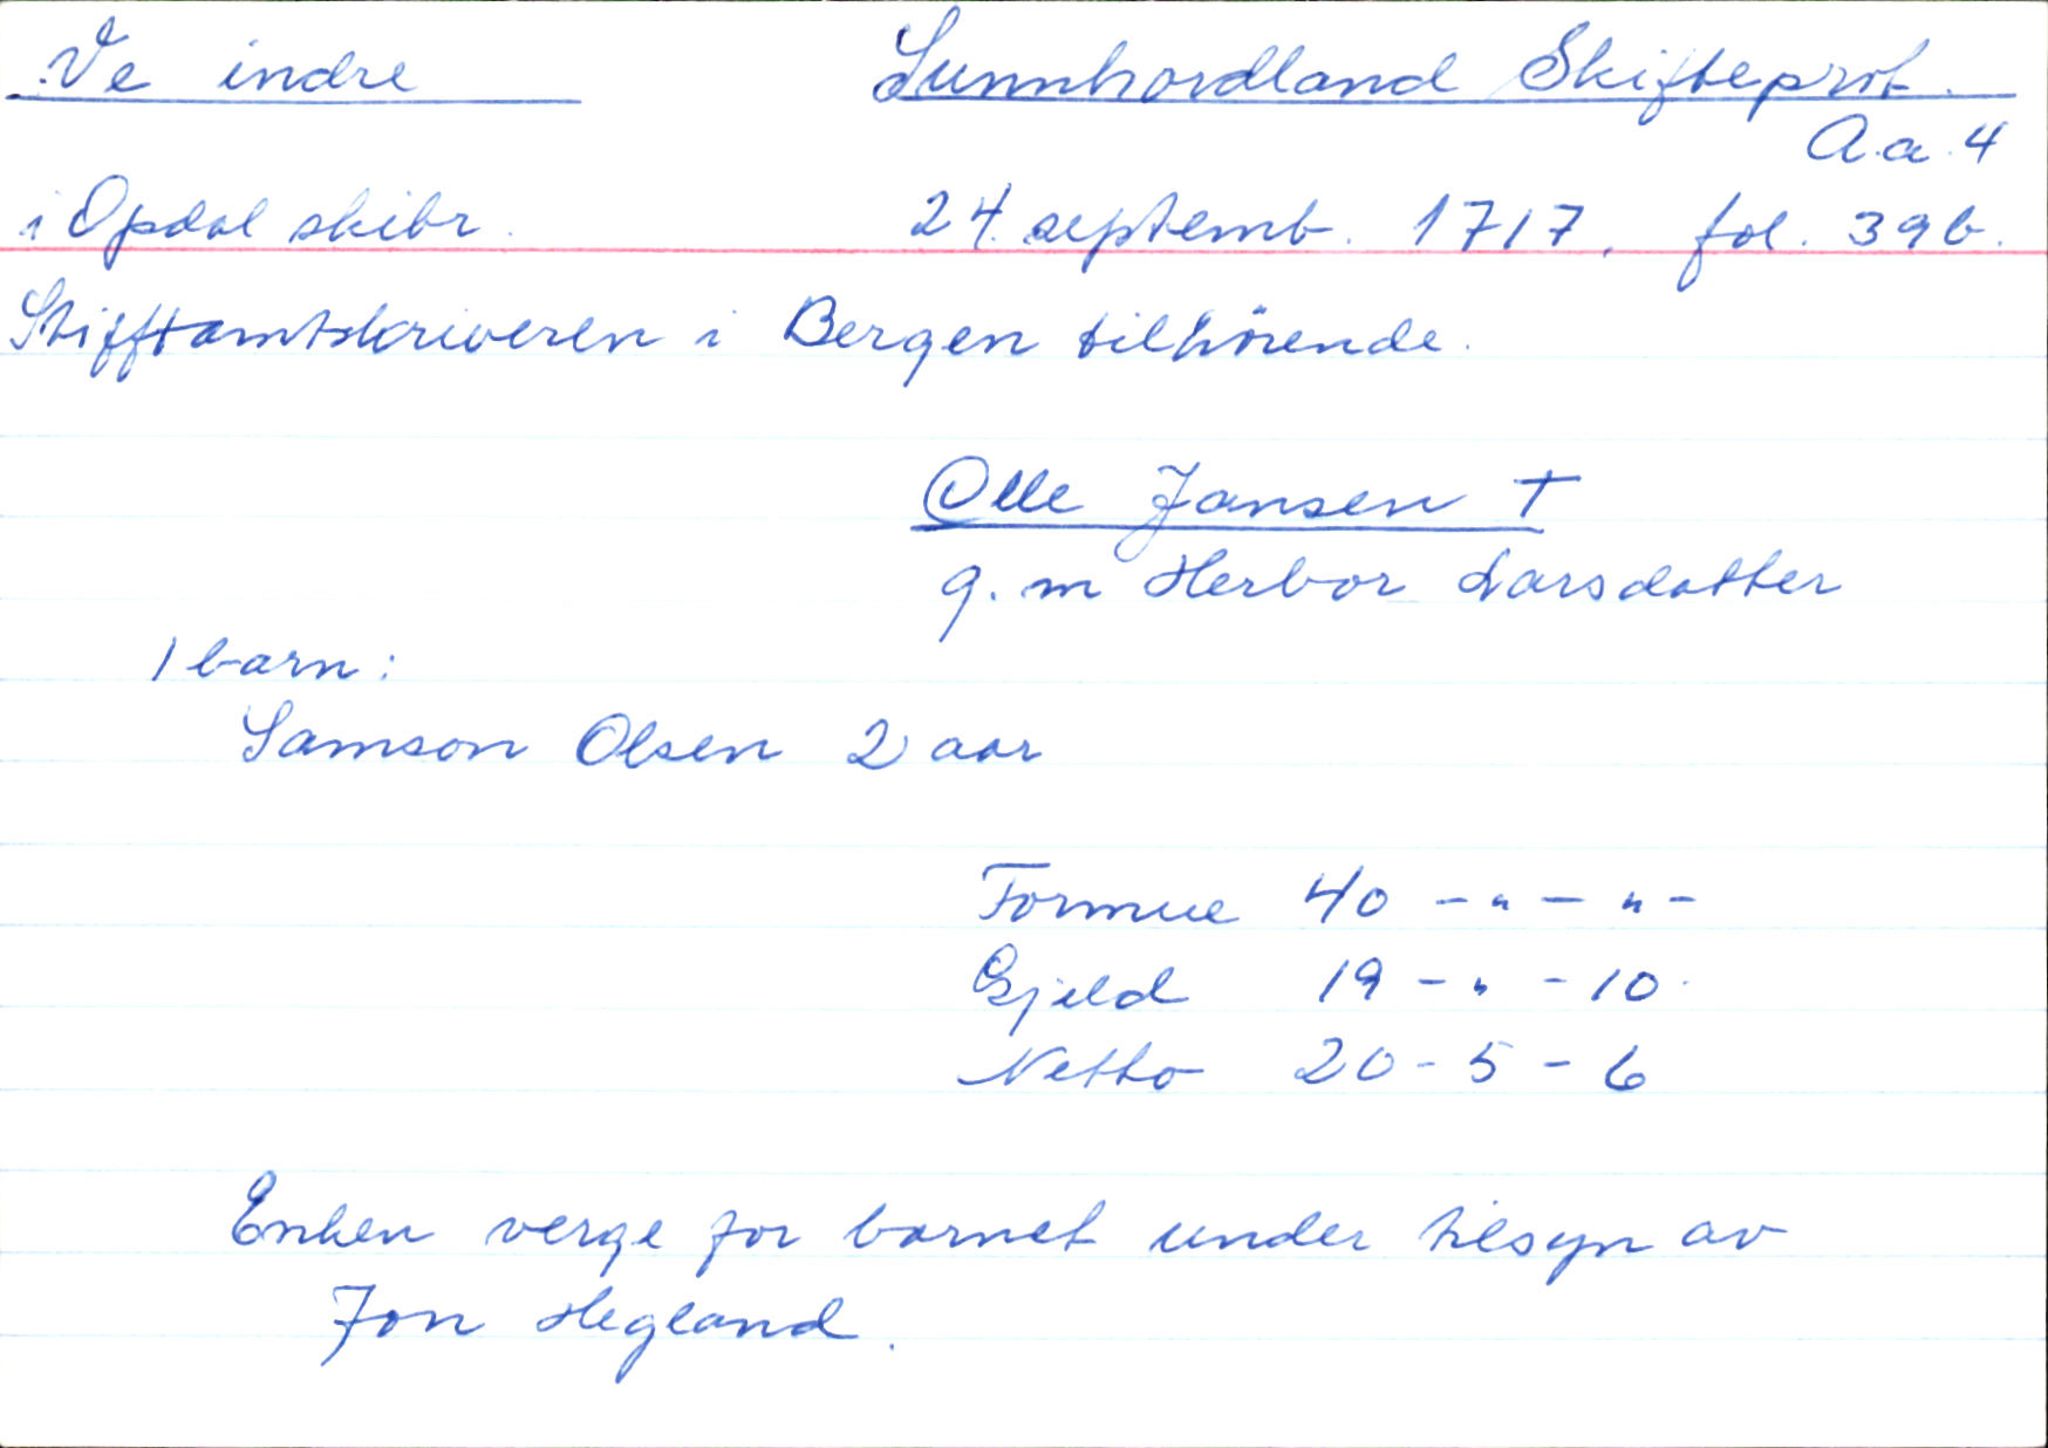 Ve indre Sunnhordland Skifteprot.
A.a.4
i Opdal skibr. 24. septemb. 1717, fol. 39b.
Stifftamtskriveren i Bergen tilhörende.
Olle Jansen †
g. m Herbor Larsdatter
1 barn:
Samson Olsen 2 aar
Formue 40 - " - " -
Gjeld 19 - " - 10.
Netto 20 - 5 - 6
Enken verge for barnet under tilsyn av
Jon Hegland.